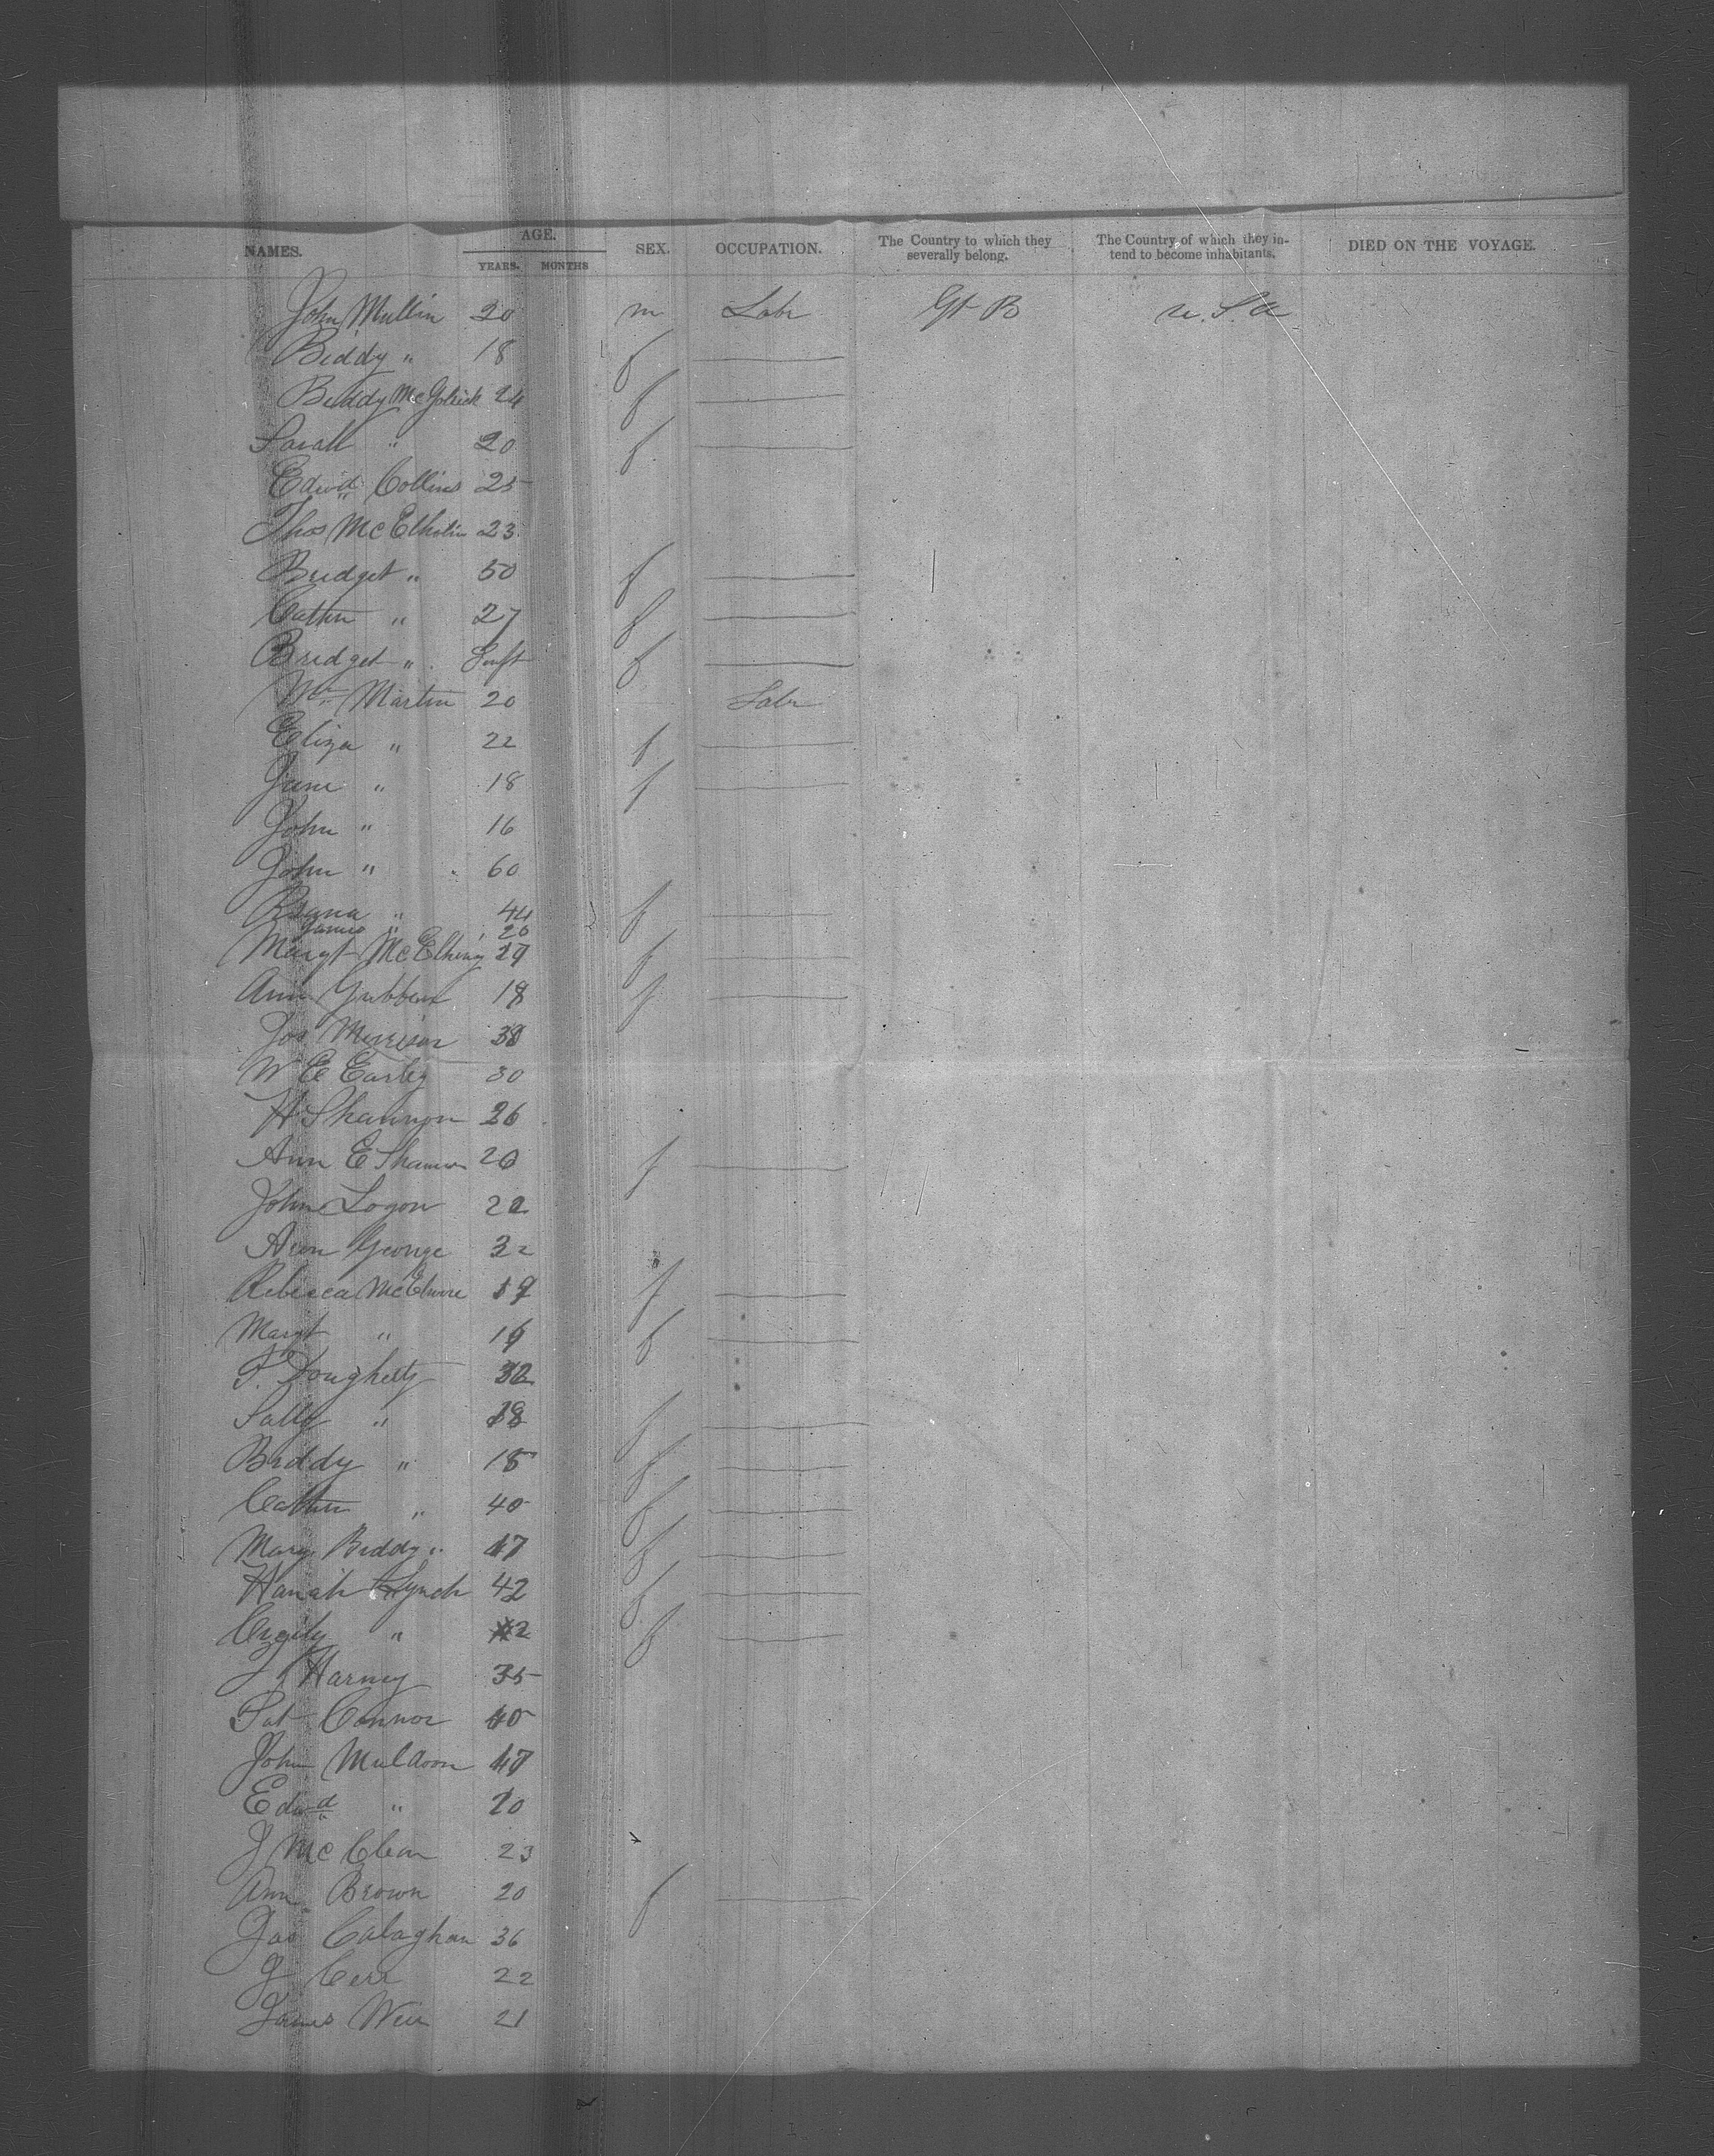 NAMES. AGE. SEX. OCCUPATION. The Country to which they severally belong. The Country of which they intend to become inhabitants. DIED ON THE VOYAGE.
YEARS. MONTHS
John Mullin 20 m Labr Gt B U.S.A
Biddy " 18 f
Biddy McGolrick 24 f
Sarah " 20 f
Edwd Collins 25
Thos McElholm 23
Bridget " 50 f
Cathn " 27 f
Bridget " Inft f
Wm Martin 20 Labr
Eliza " 22 f
Jane " 18 f
John " 16
John " 60
Rosana " 44 f
James " 20
Margt McElhiny f
Ann 18 f
Jos Morrison
W E Earley 30
H Shannon 26
Ann E Shannon 20 f
John Logon 22
Ann George 32
Rebecca f
Margt " 16 f
F. Dougherty 32
Sally " 18 f
Biddy " 15 f
Cathn " 40 f
Mary Biddy " 17 f
Hanah Lynch 42 f
" f
J Harney 35
Pat Connor 40
John Muldoon
Edwd " 20
J McClean 23
Ann Brown 20 f
Jas Calaghan 36
J Cerr 22
James Weir 21